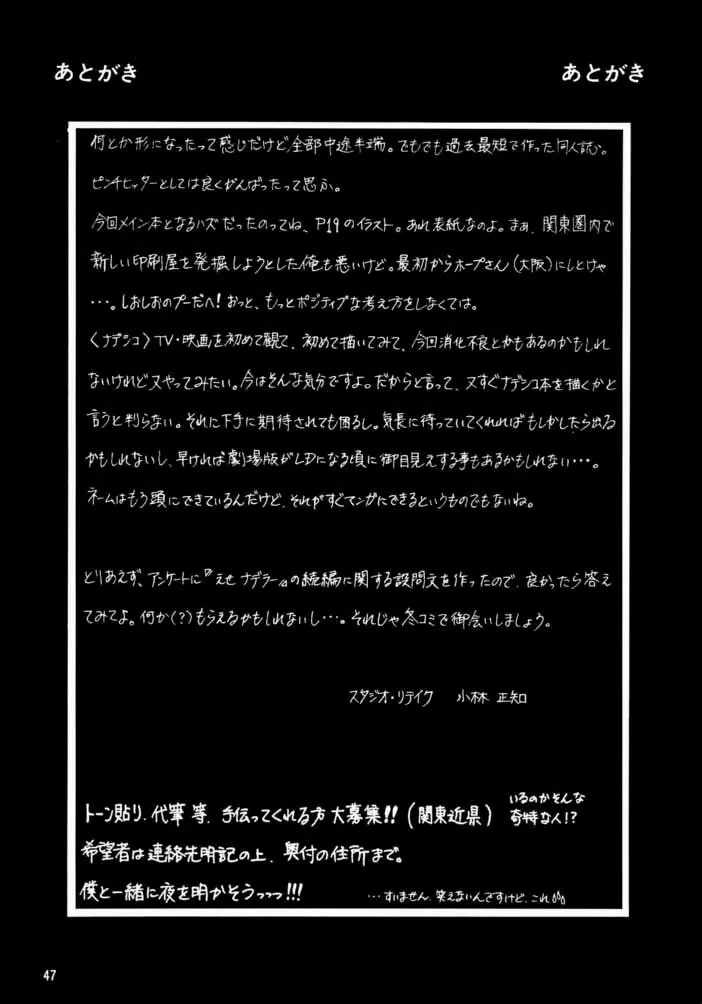 あとがき
あとがき
何とか形になったって感じだけど全部中途半端。でもでも過去最短で作った同人誌。
ピンチヒッターとしては良くがんばったって思ふ。
今回メイン本となるハズだったのってね、P19のイラスト。あれ表紙なのよ。まぁ、関東圏内で
新しい印刷屋を発掘しようとした俺も悪いけど。最初からホープさん(大阪)にしとけゃ
・・・。しおしおのプーだへ!おっと、もっとポジティブな考え方をしなくては。
〈ナデシコ〉TV・映画を初めて観て、初めて描いてみて、今回消化不良とかもあるのかもしれ
ないけれど又やってみたい。今はそんな気分ですよ。だからと言って、又すぐナデシコ本を描くかと
言うと判らない。それに下手に期待されても困るし。気長に待っていてくれればもしかしたら出る
かもしれないし、早ければ劇場版がLDになる頃に御目見えする事もあるかもしれない・・・。
ネームはもう頭にできているんだけど、それがすぐマンガにできるというものでもないね。
とりあえず、アンケートに『えせ ナデラー』の続編に関する設問文を作ったので、良かったら答え
てみてよ。何か(?)もらえるかもしれないし・・・。それじゃ冬コミで御会いしましょう。
スタジオ・リテイク 小林 正知
トーン貼り、代筆 等、手伝ってくれる方 大募集!!(関東近県)
いるのかそんな
奇特な人!?
希望者は連絡先明記の上、奥付の住所まで。
僕と一緒に夜を明かそうっっっ!!!
・・・すいません、笑えないんですけど、これ
47